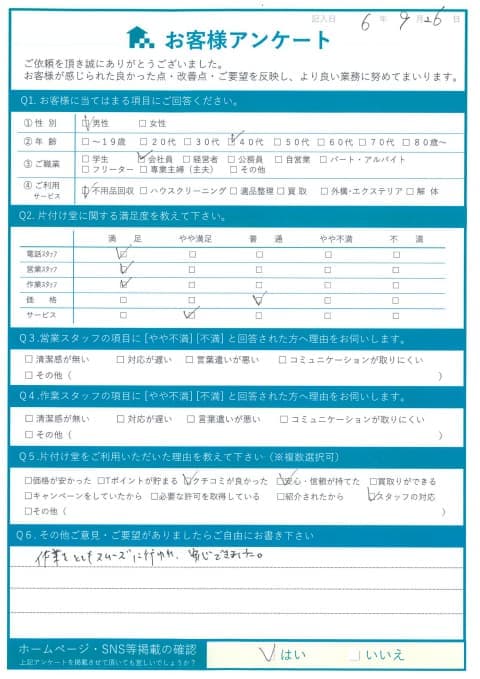 記入日 6 年 9 月 26 日
お客様アンケート
ご依頼を頂き誠にありがとうございました。
お客様が感じられた良かった点・改善点・ご要望を反映し、より良い業務に努めてまいります。
Q1. お客様に当てはまる項目にご回答ください。
① 性 別 ☑男性 □女性
② 年 齢 □～19歳 □20代 □30代 ☑40代 □50代 □60代 □70代 □80歳～
③ ご職業 □学生 ☑会社員 □経営者 □公務員 □自営業 □パート・アルバイト
□フリーター □専業主婦（主夫） □その他
④ ご利用サービス ☑不用品回収 □ハウスクリーニング □遺品整理 □買取 □外構・エクステリア □解体
Q2. 片付け堂に関する満足度を教えて下さい。
満足 やや満足 普通 やや不満 不満
電話スタッフ ☑ □ □ □ □
営業スタッフ ☑ □ □ □ □
作業スタッフ ☑ □ □ □ □
価格 □ □ ☑ □ □
サービス □ ☑ □ □ □
Q3.営業スタッフの項目に[やや不満][不満]と回答された方へ理由をお伺いします。
□清潔感が無い □対応が遅い □言葉遣いが悪い □コミュニケーションが取りにくい
□その他（ ）
Q4.作業スタッフの項目に[やや不満][不満]と回答された方へ理由をお伺いします。
□清潔感が無い □対応が遅い □言葉遣いが悪い □コミュニケーションが取りにくい
□その他（ ）
Q5.片付け堂をご利用いただいた理由を教えて下さい（※複数選択可）
□価格が安かった □Tポイントが貯まる ☑クチコミが良かった ☑安心・信頼が持てた □買取りができる
□キャンペーンをしていたから □必要な許可を取得している □紹介されたから ☑スタッフの対応
□その他（ ）
Q6.その他ご意見・ご要望がありましたらご自由にお書き下さい
作業もとてもスムーズに行われ、安心できました。
ホームページ・SNS等掲載の確認
上記アンケートを掲載させて頂いても宜しいでしょうか？
☑はい □いいえ